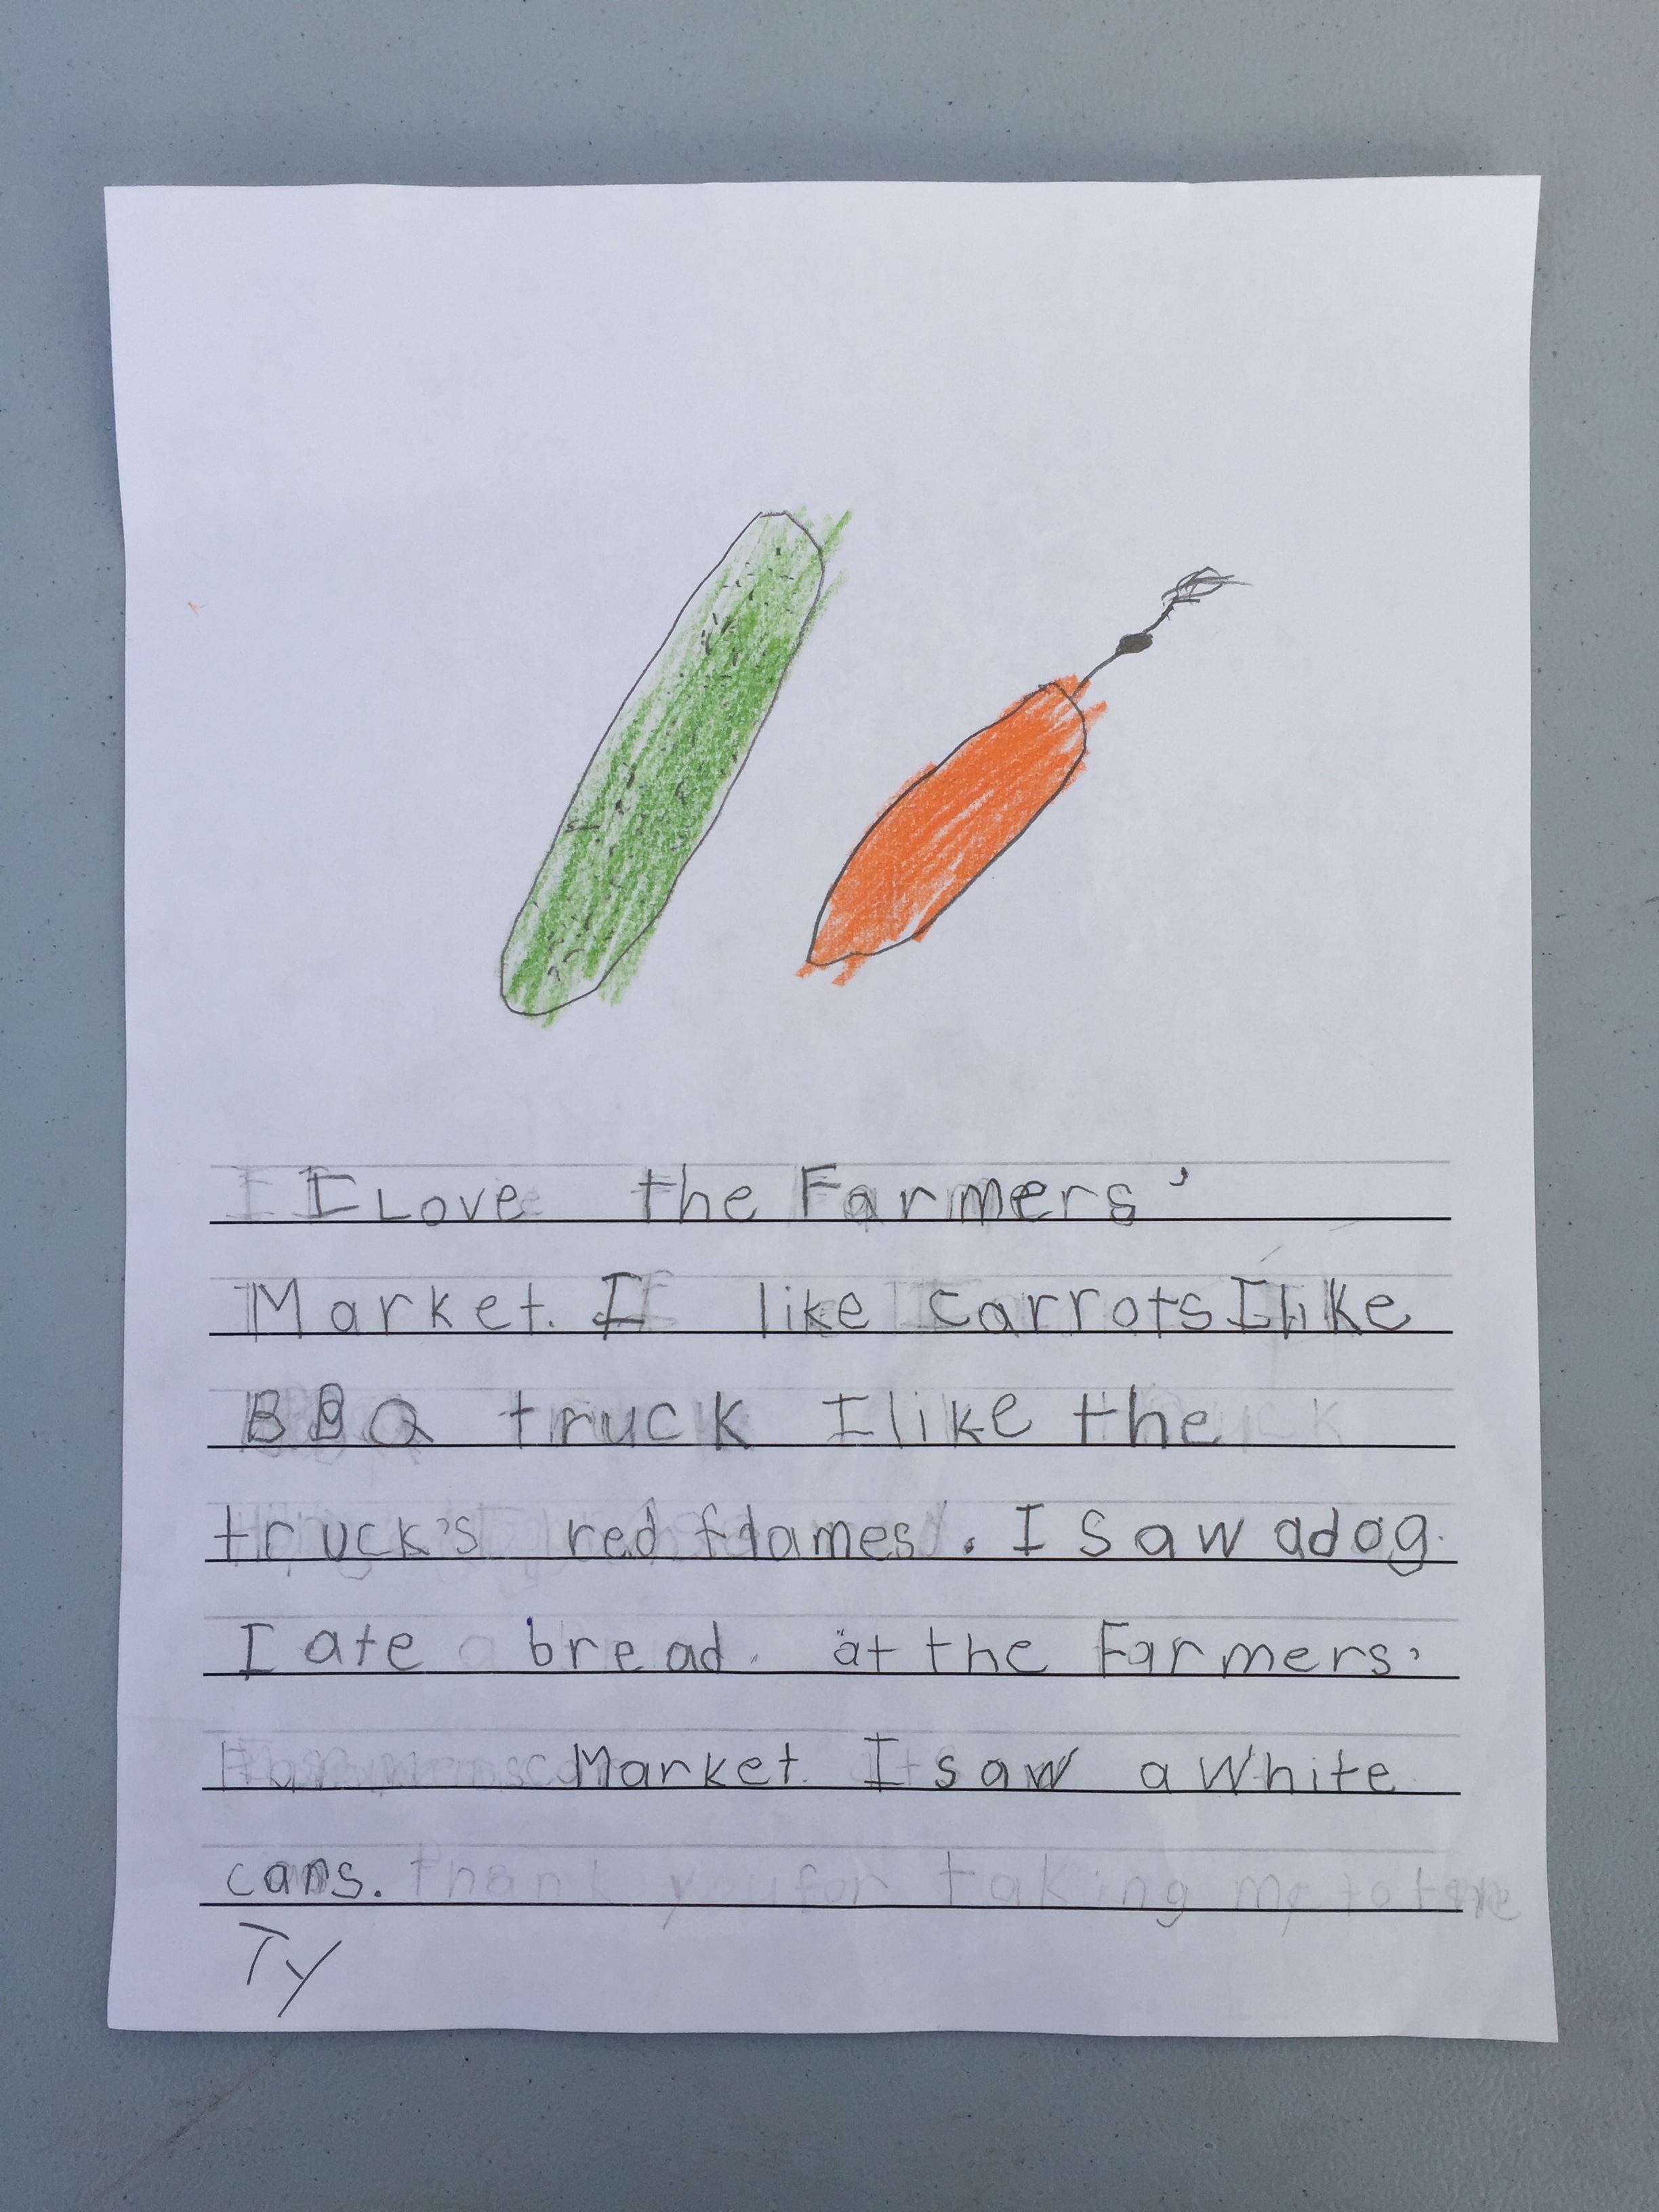 I Love the Farmers'
Market. I like carrots I like
BBQ truck I like the
truck's red flames. I saw a dog.
I ate bread. at the Farmers'
Market. I saw a white
cans. thank you for taking me to the
Ty